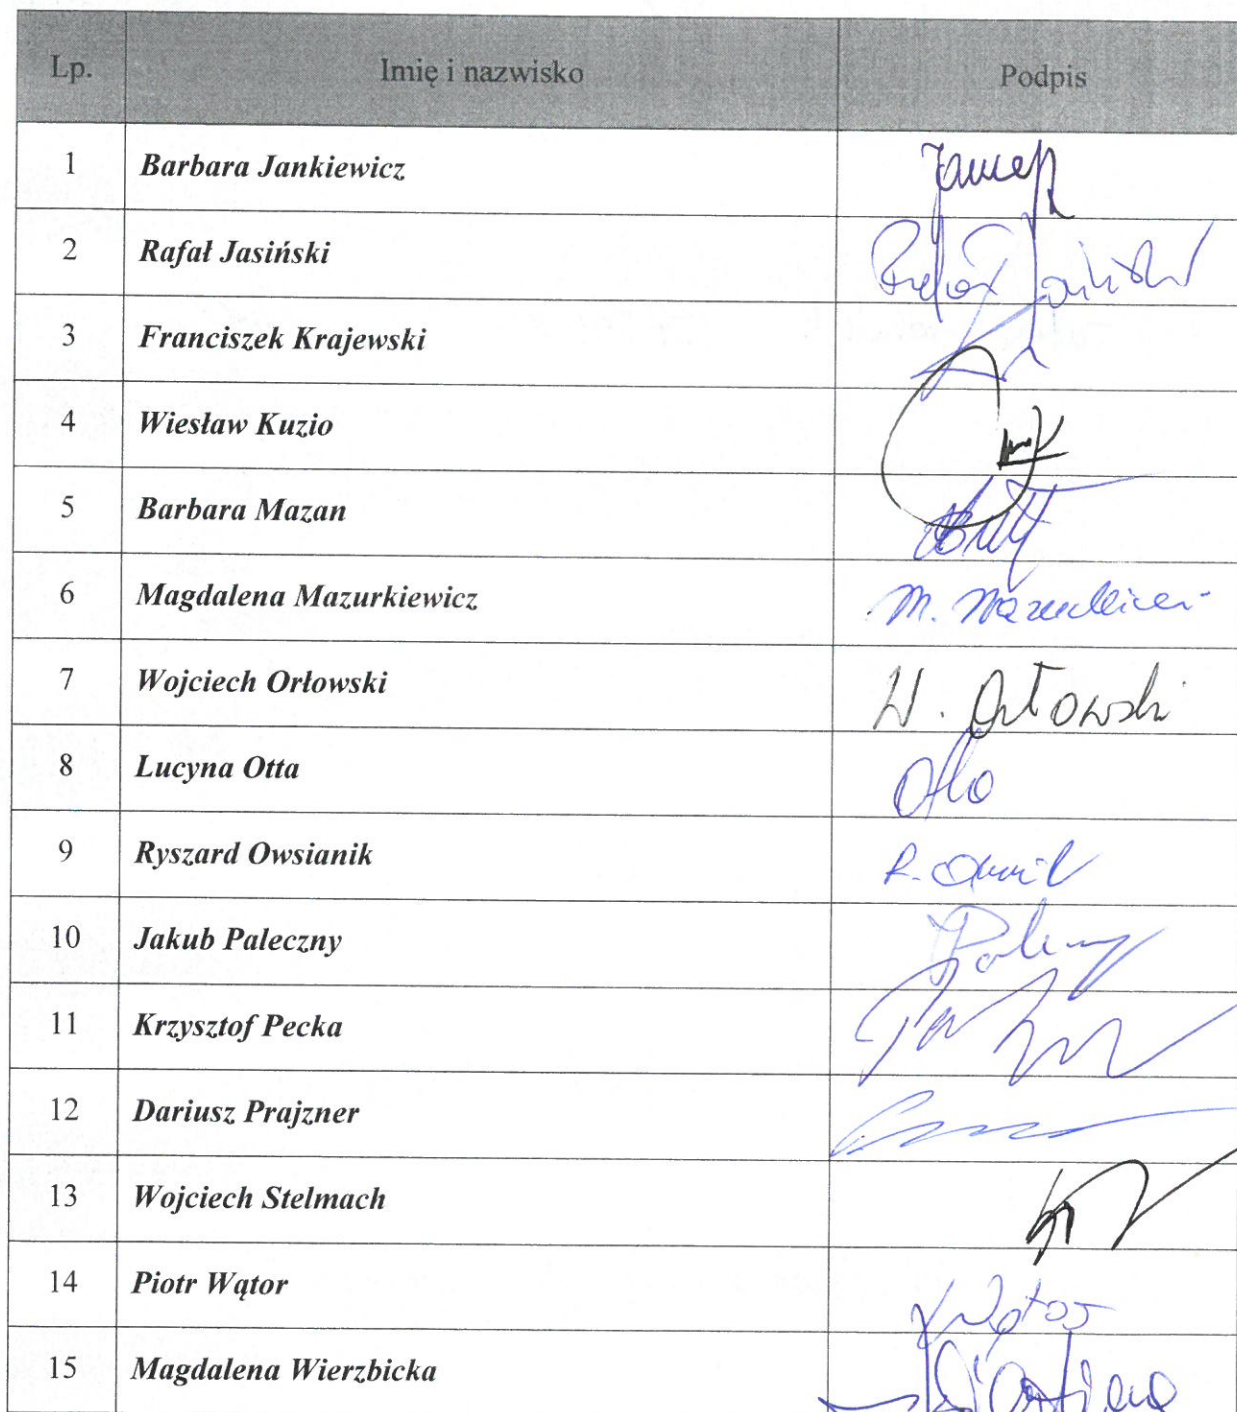 Lp. Imię i nazwisko Podpis
1 Barbara Jankiewicz
2 Rafał Jasiński Rafał Jasiński
3 Franciszek Krajewski
4 Wiesław Kuzio
5 Barbara Mazan
6 Magdalena Mazurkiewicz M. Mazurkiewicz
7 Wojciech Orłowski W. Orłowski
8 Lucyna Otta
9 Ryszard Owsianik
10 Jakub Paleczny
11 Krzysztof Pecka
12 Dariusz Prajzner
13 Wojciech Stelmach
14 Piotr Wątor
15 Magdalena Wierzbicka